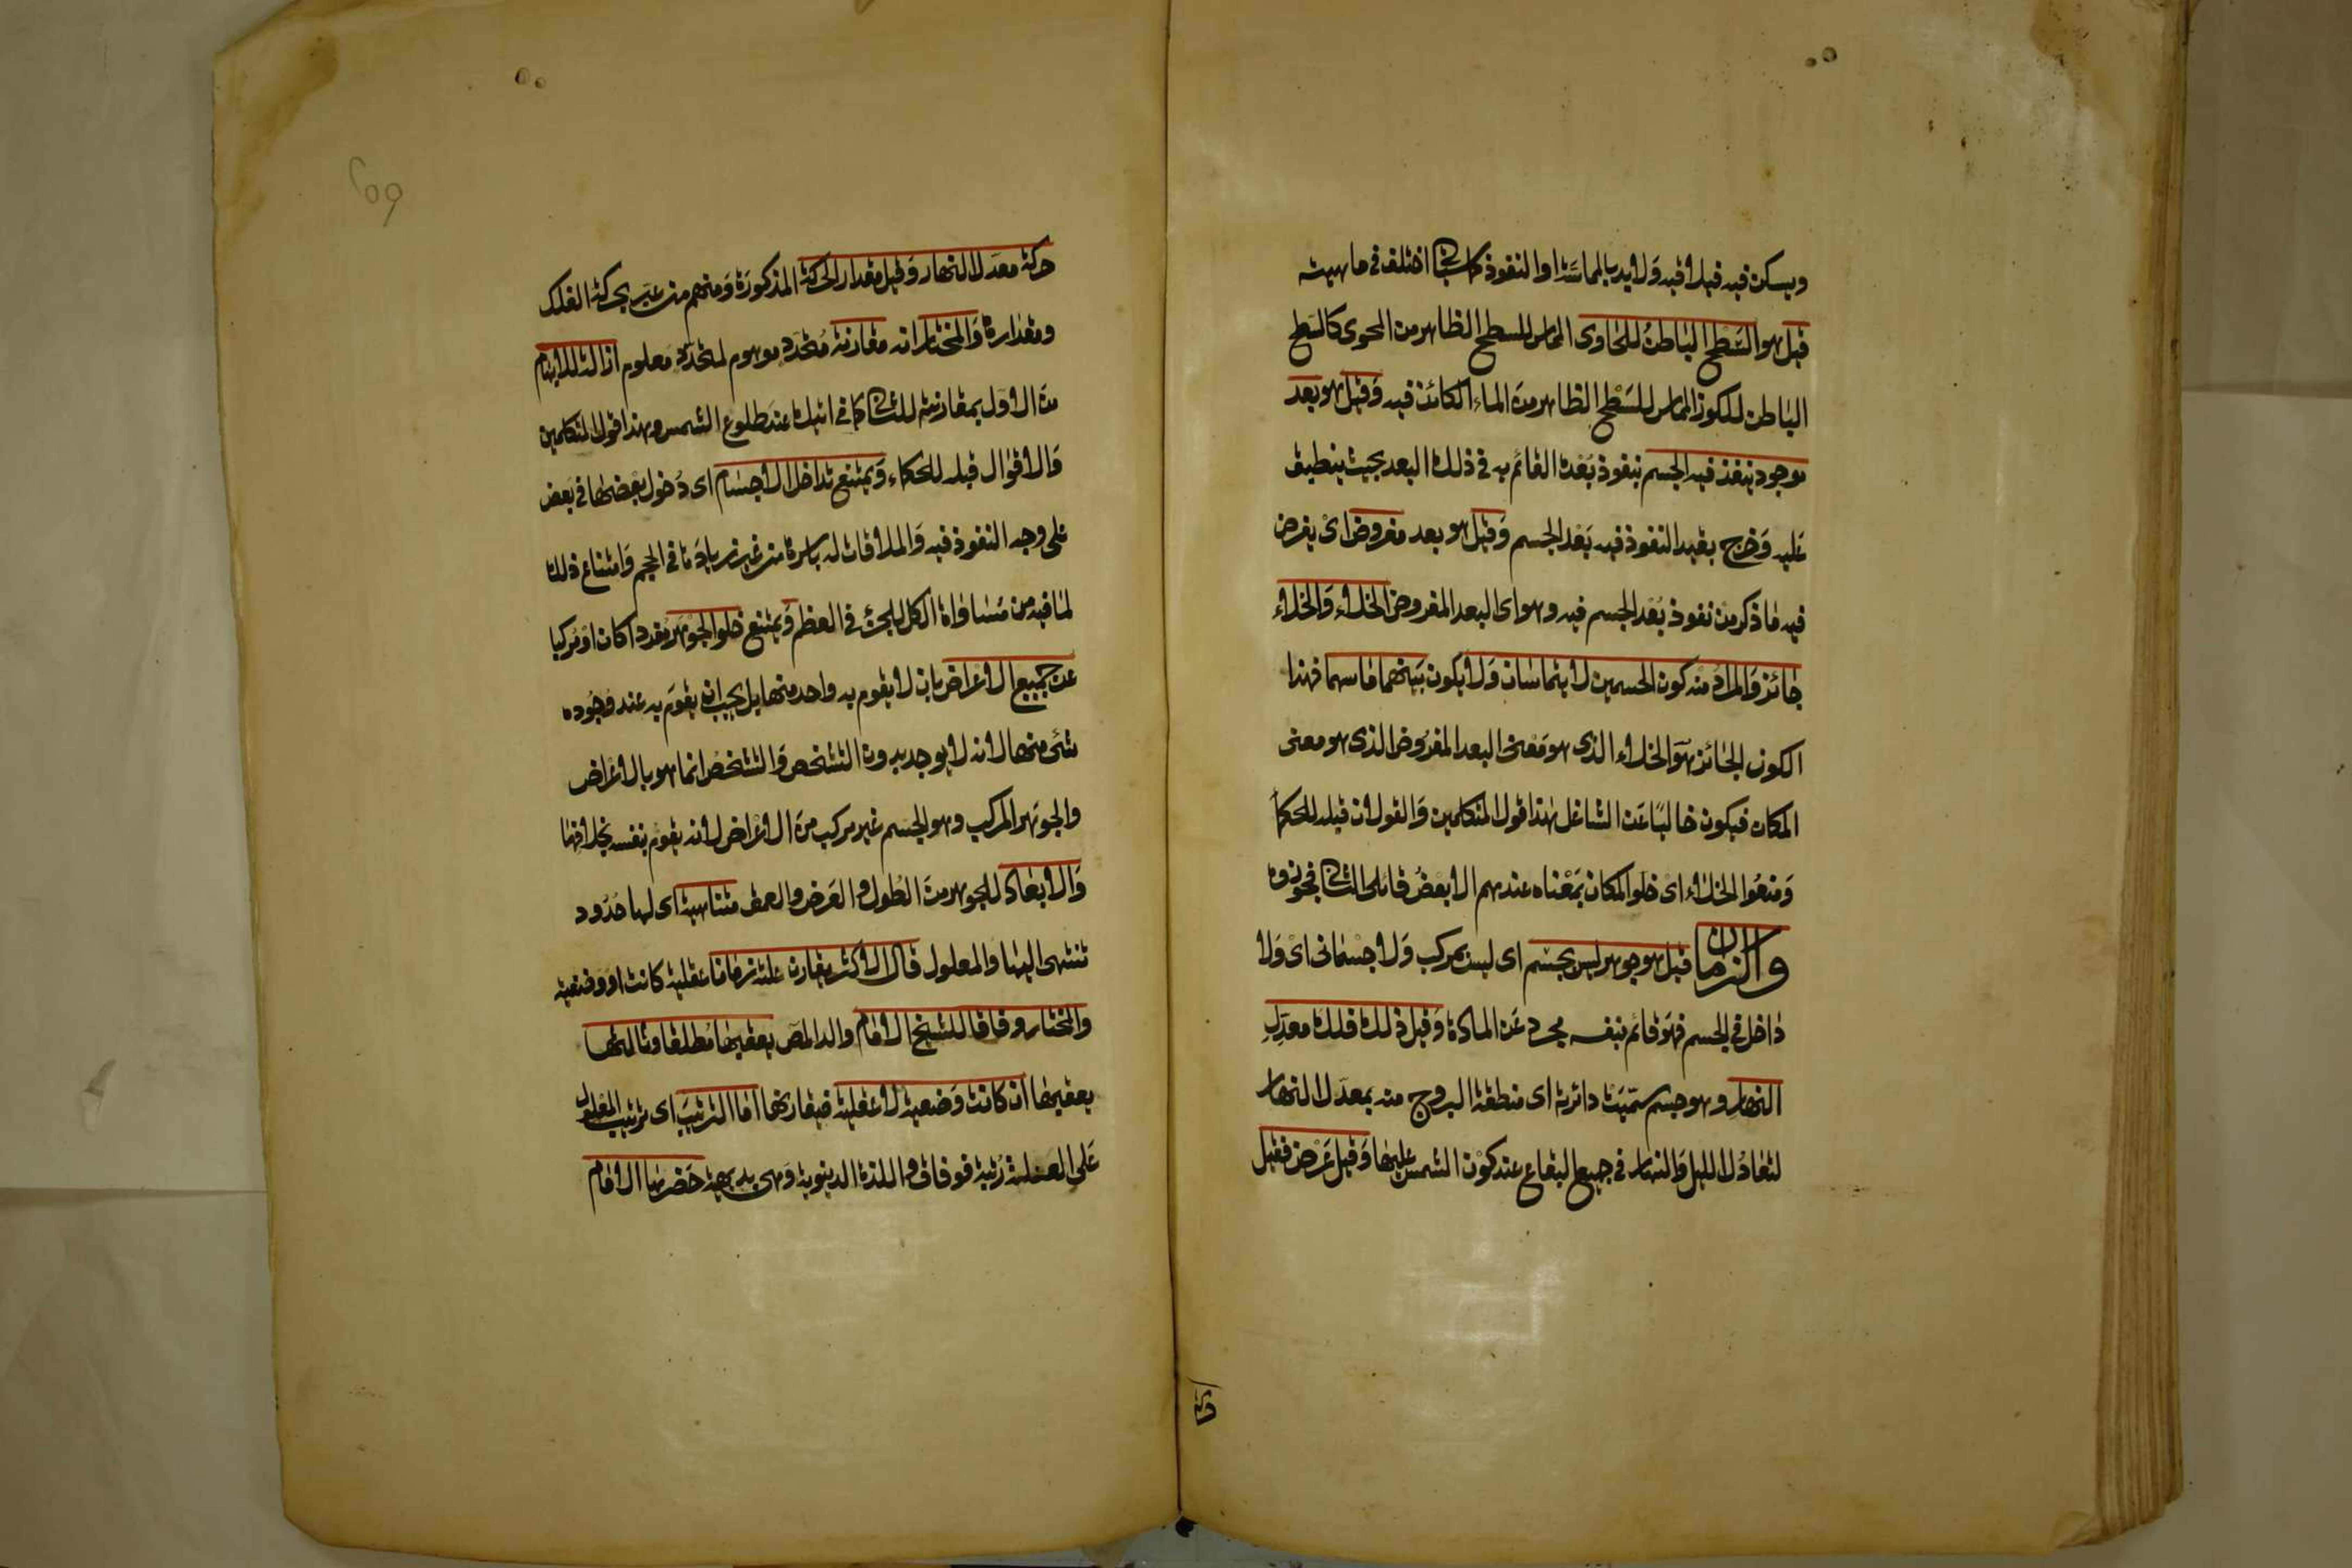 ويسكن فيه فيلاقيه ولابد بالمماسة او النفوذ كما سياتي اختلف في ماهيته
قيل هو السَّطح الباطنُ للحاوى المماس للسطح الظاهر من المحوى كالسطح
الباطن للكوز المماس للسَّطح الظاهر من الماء الكائن فيه وقيل هو بعد
موجود ينفذ فيه الجسم بنفوذ بُعْدِه القائم به في ذلك البعد بحيث ينطبق
عَليه وَخرج بقيد النفوذ فيه بَعْد الجسم وَقيل هو بعد مفروض اىْ يفرض
فيه مَا ذكر من نفوذ بُعْد الجسم فيه وهو اى البعد المفروض الخلاء وَالخلاء
جَائز وَالمراد منه كون الجسمين لا يتماسان وَلا يكون بَينهما مَا يماسهما فهذا
الكون الجائز هوَ الخلاء الذى هو مَعْنى البعد المفرُوض الذى هو معنى
المكان فيكون خاليًا عَن الشاغل هٰذا قول المتكلمين وَالقولان قبله للحكمأ
وَمنعُوا الخلاء اىْ خلو المكان بمَعْناه عندهم الا بعْضُ قائلى الثاني فجوزوه
والزمان قيل هو جوهر ليس بجسْم اى ليس بمركب وَلا جسْمانى اىْ وَلا
دَاخل في الجسم فهوَ قائم بنفسه مجرد عَن المادة وَقيل ذلك فلك معدّلِ
النهار وهو جسم سمّيَتْ دائرته اى منطقة البروج منه بمعدّل النهار
لتعَادُل الليل وَالنهار في جميع البقاع عند كوْن الشمس عليهَا وَقيل عَرَض فقيل
حركة
حركة معدّل النهار وَقيل مقدار الحَركة المذكورَة وَمنهم من عبَر بحركة الفلك
ومقدارهَا وَالمختار انه مقارنة مُتجدّدٍ موهوم لمتجدّد معلوم ازالة للايهام
من الاول بمقارنته للثاني كما في اتيك عند طلوع الشمس وهذا قول المتكلمين
وَالاقوال قبله للحكماء وَيمتنع تداخل الاجسَام اى دُخول بعْضهَا في بَعض
على وجه النفوذ فيه وَالملاقات له باسره من غير زيادَة في الحجم وَامتناع ذلك
لمَا فيه من مُسَاوَاة الكل للجزء في العظم وَيمتنع خلو الجوْهر مفردا كان اوْ مركبا
عن جميع الاعْرَاض بان لا يقوم به واحد منها بل يجب ان يقوَم به عند وجُوده
شئ منها لانه لا يوجد بدون التشخص وَالتشخصُ انما هو بالاعْرَاض
والجوهَر المركب وهو الجسم غير مركب منَ الاعْرَاض لانه يقوم بنفسه بخلافهَا
وَالابعَادُ للجوهر منَ الطُول وَالعَرض والعمق متناهية اى لها حُدُود
تنتهى اليهَا والمعلول قال الاكثر يقارن علته زمَانا عقلية كانت او وضعية
والمختار وفاقا للشيخ الامَام والد المصَ يعقبهَا مُطلقا وثالثها
يعقبهَا ان كانت وَضعية لا عقلية فيقارنها امَا الترتيبَ اى ترتيب المعلول
عَلى العلة رُتبة فوفاق وَاللذة الدينوية وَهى بديهية حَصَرهَا الامَام